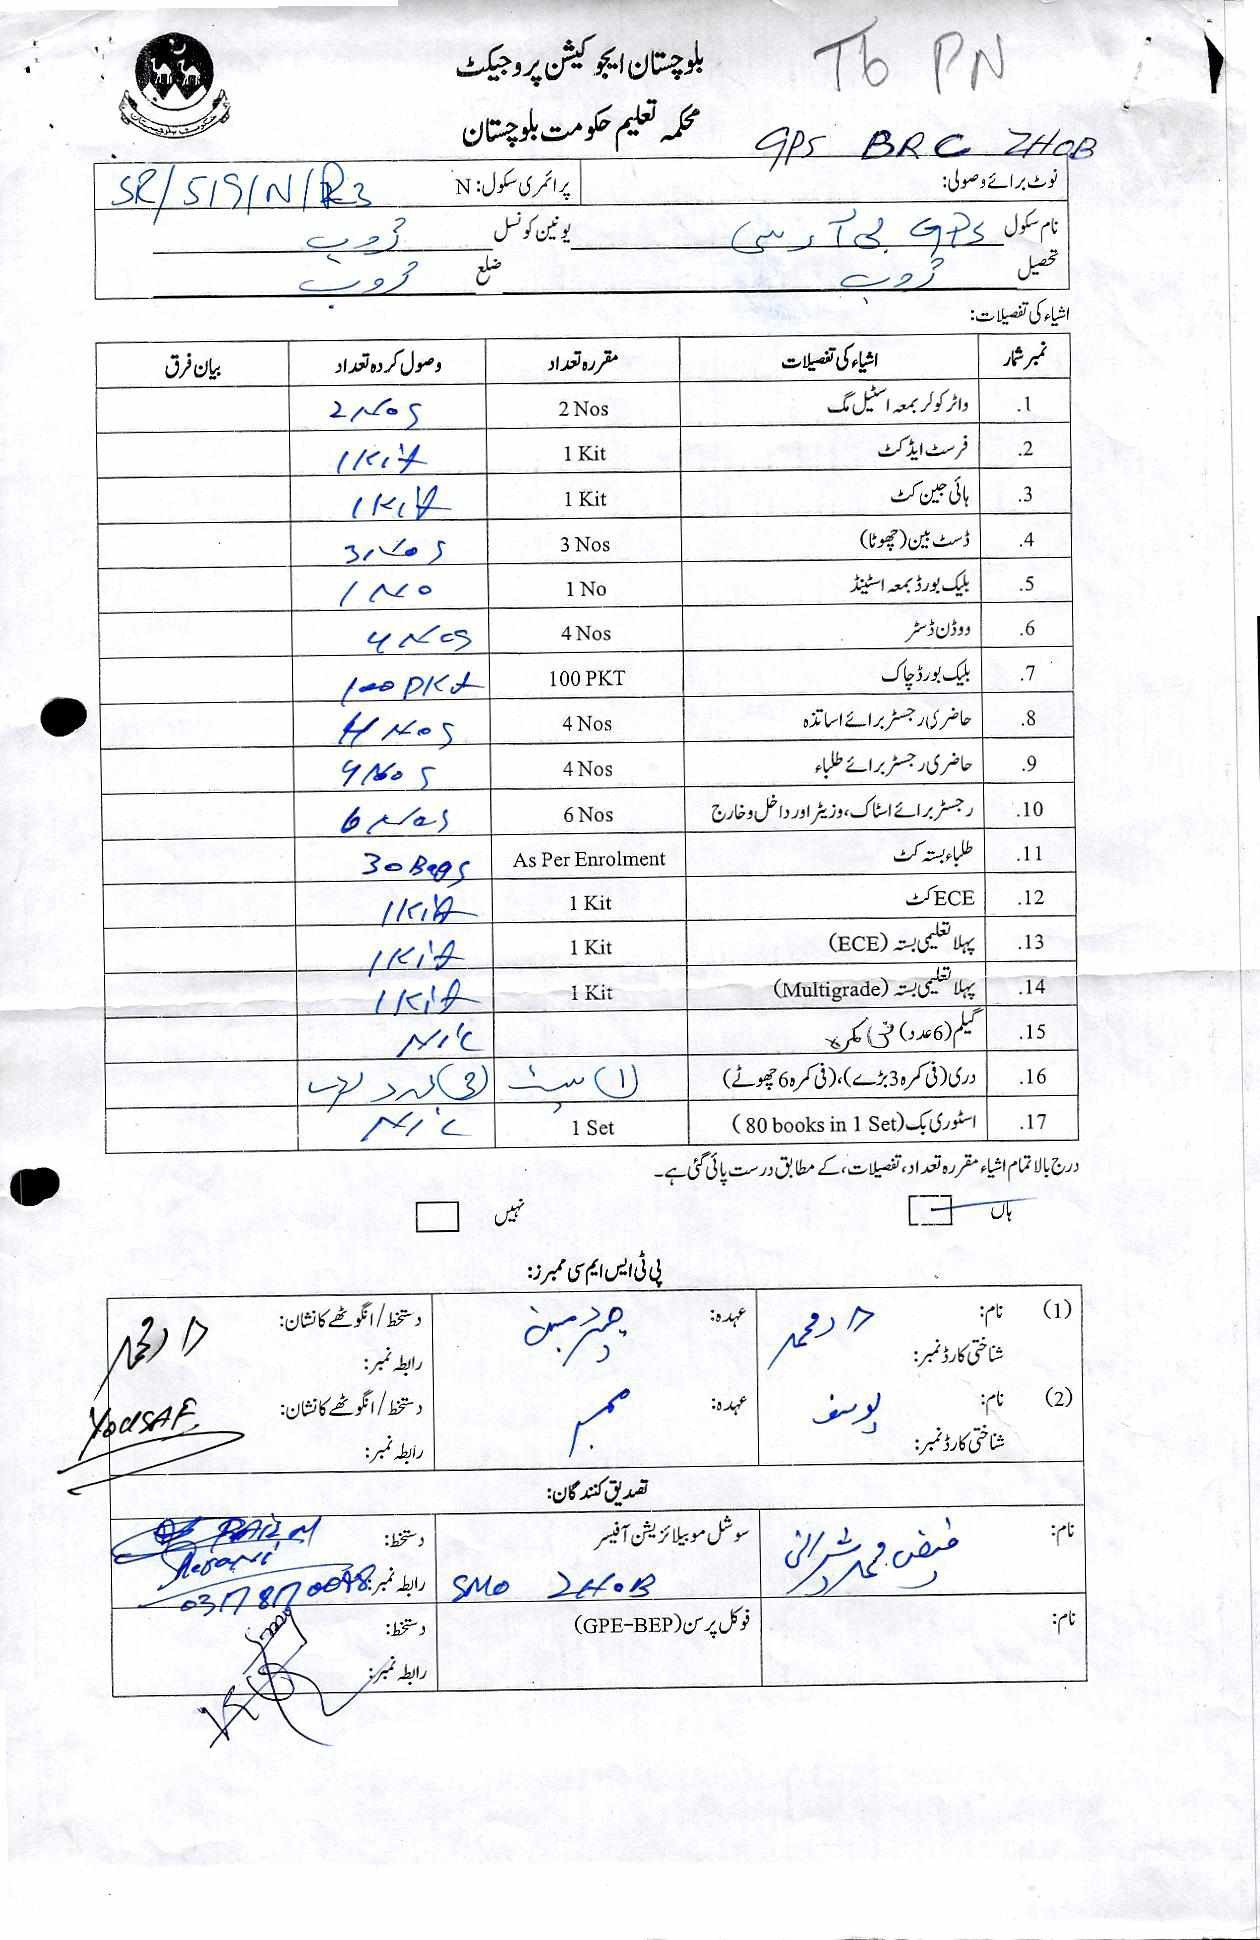 بلوچستان ایجوکیشن پروجیکٹ
T6 PN
محکمہ تعلیم حکومت بلوچستان
GPS BRC ZHOB
نوٹ برائے وصولی: پرائمری سکول: N SR/519/N/R3
نام سکول GPS بی آر سی یونین کونسل ژوب
تحصیل ژوب ضلع ژوب
اشیاء کی تفصیلات:
نمبر شمار اشیاء کی تفصیلات مقررہ تعداد وصول کردہ تعداد بیان فرق
1. واٹر کولر بمعہ اسٹیل مگ 2 Nos 2 Nos
2. فرسٹ ایڈ کٹ 1 Kit 1 Kit
3. ہائی جین کٹ 1 Kit 1 Kit
4. ڈسٹ بین (چھوٹا) 3 Nos 3 Nos
5. بلیک بورڈ بمعہ اسٹینڈ 1 No 1 No
6. ووڈن ڈسٹر 4 Nos 4 Nos
7. بلیک بورڈ چاک 100 PKT 100 PKT
8. حاضری رجسٹر برائے اساتذہ 4 Nos 4 Nos
9. حاضری رجسٹر برائے طلباء 4 Nos 4 Nos
10. رجسٹر برائے اسٹاک، وزیٹر اور داخل و خارج 6 Nos 6 Nos
11. طلباء بستہ کٹ As Per Enrolment 30 Bags
12. ECE کٹ 1 Kit 1 Kit
13. پہلا تعلیمی بستہ (ECE) 1 Kit 1 Kit
14. پہلا تعلیمی بستہ (Multigrade) 1 Kit 1 Kit
15. گیلم (6 عدد) فی کمرہ
16. دری (فی کمرہ 3 بڑے)، (فی کمرہ 6 چھوٹے) (1) سیٹ (3) عدد
17. اسٹوری بک (80 books in 1 Set) 1 Set
درج بالا تمام اشیاء مقررہ تعداد، تفصیلات، کے مطابق درست پائی گئی ہے۔
ہاں نہیں
پی ٹی ایس ایم سی ممبرز:
(1) نام: عہدہ: چیئرمین دستخط / انگوٹھے کا نشان:
شناختی کارڈ نمبر: رابطہ نمبر:
(2) نام: یوسف عہدہ: ممبر دستخط / انگوٹھے کا نشان: YOUSAF
شناختی کارڈ نمبر: رابطہ نمبر:
تصدیق کنندگان:
نام: فیض محمد شیرانی سوشل موبیلائزیشن آفیسر دستخط:
SMO ZHOB رابطہ نمبر:
نام: فوکل پرسن (GPE-BEP) دستخط:
رابطہ نمبر: